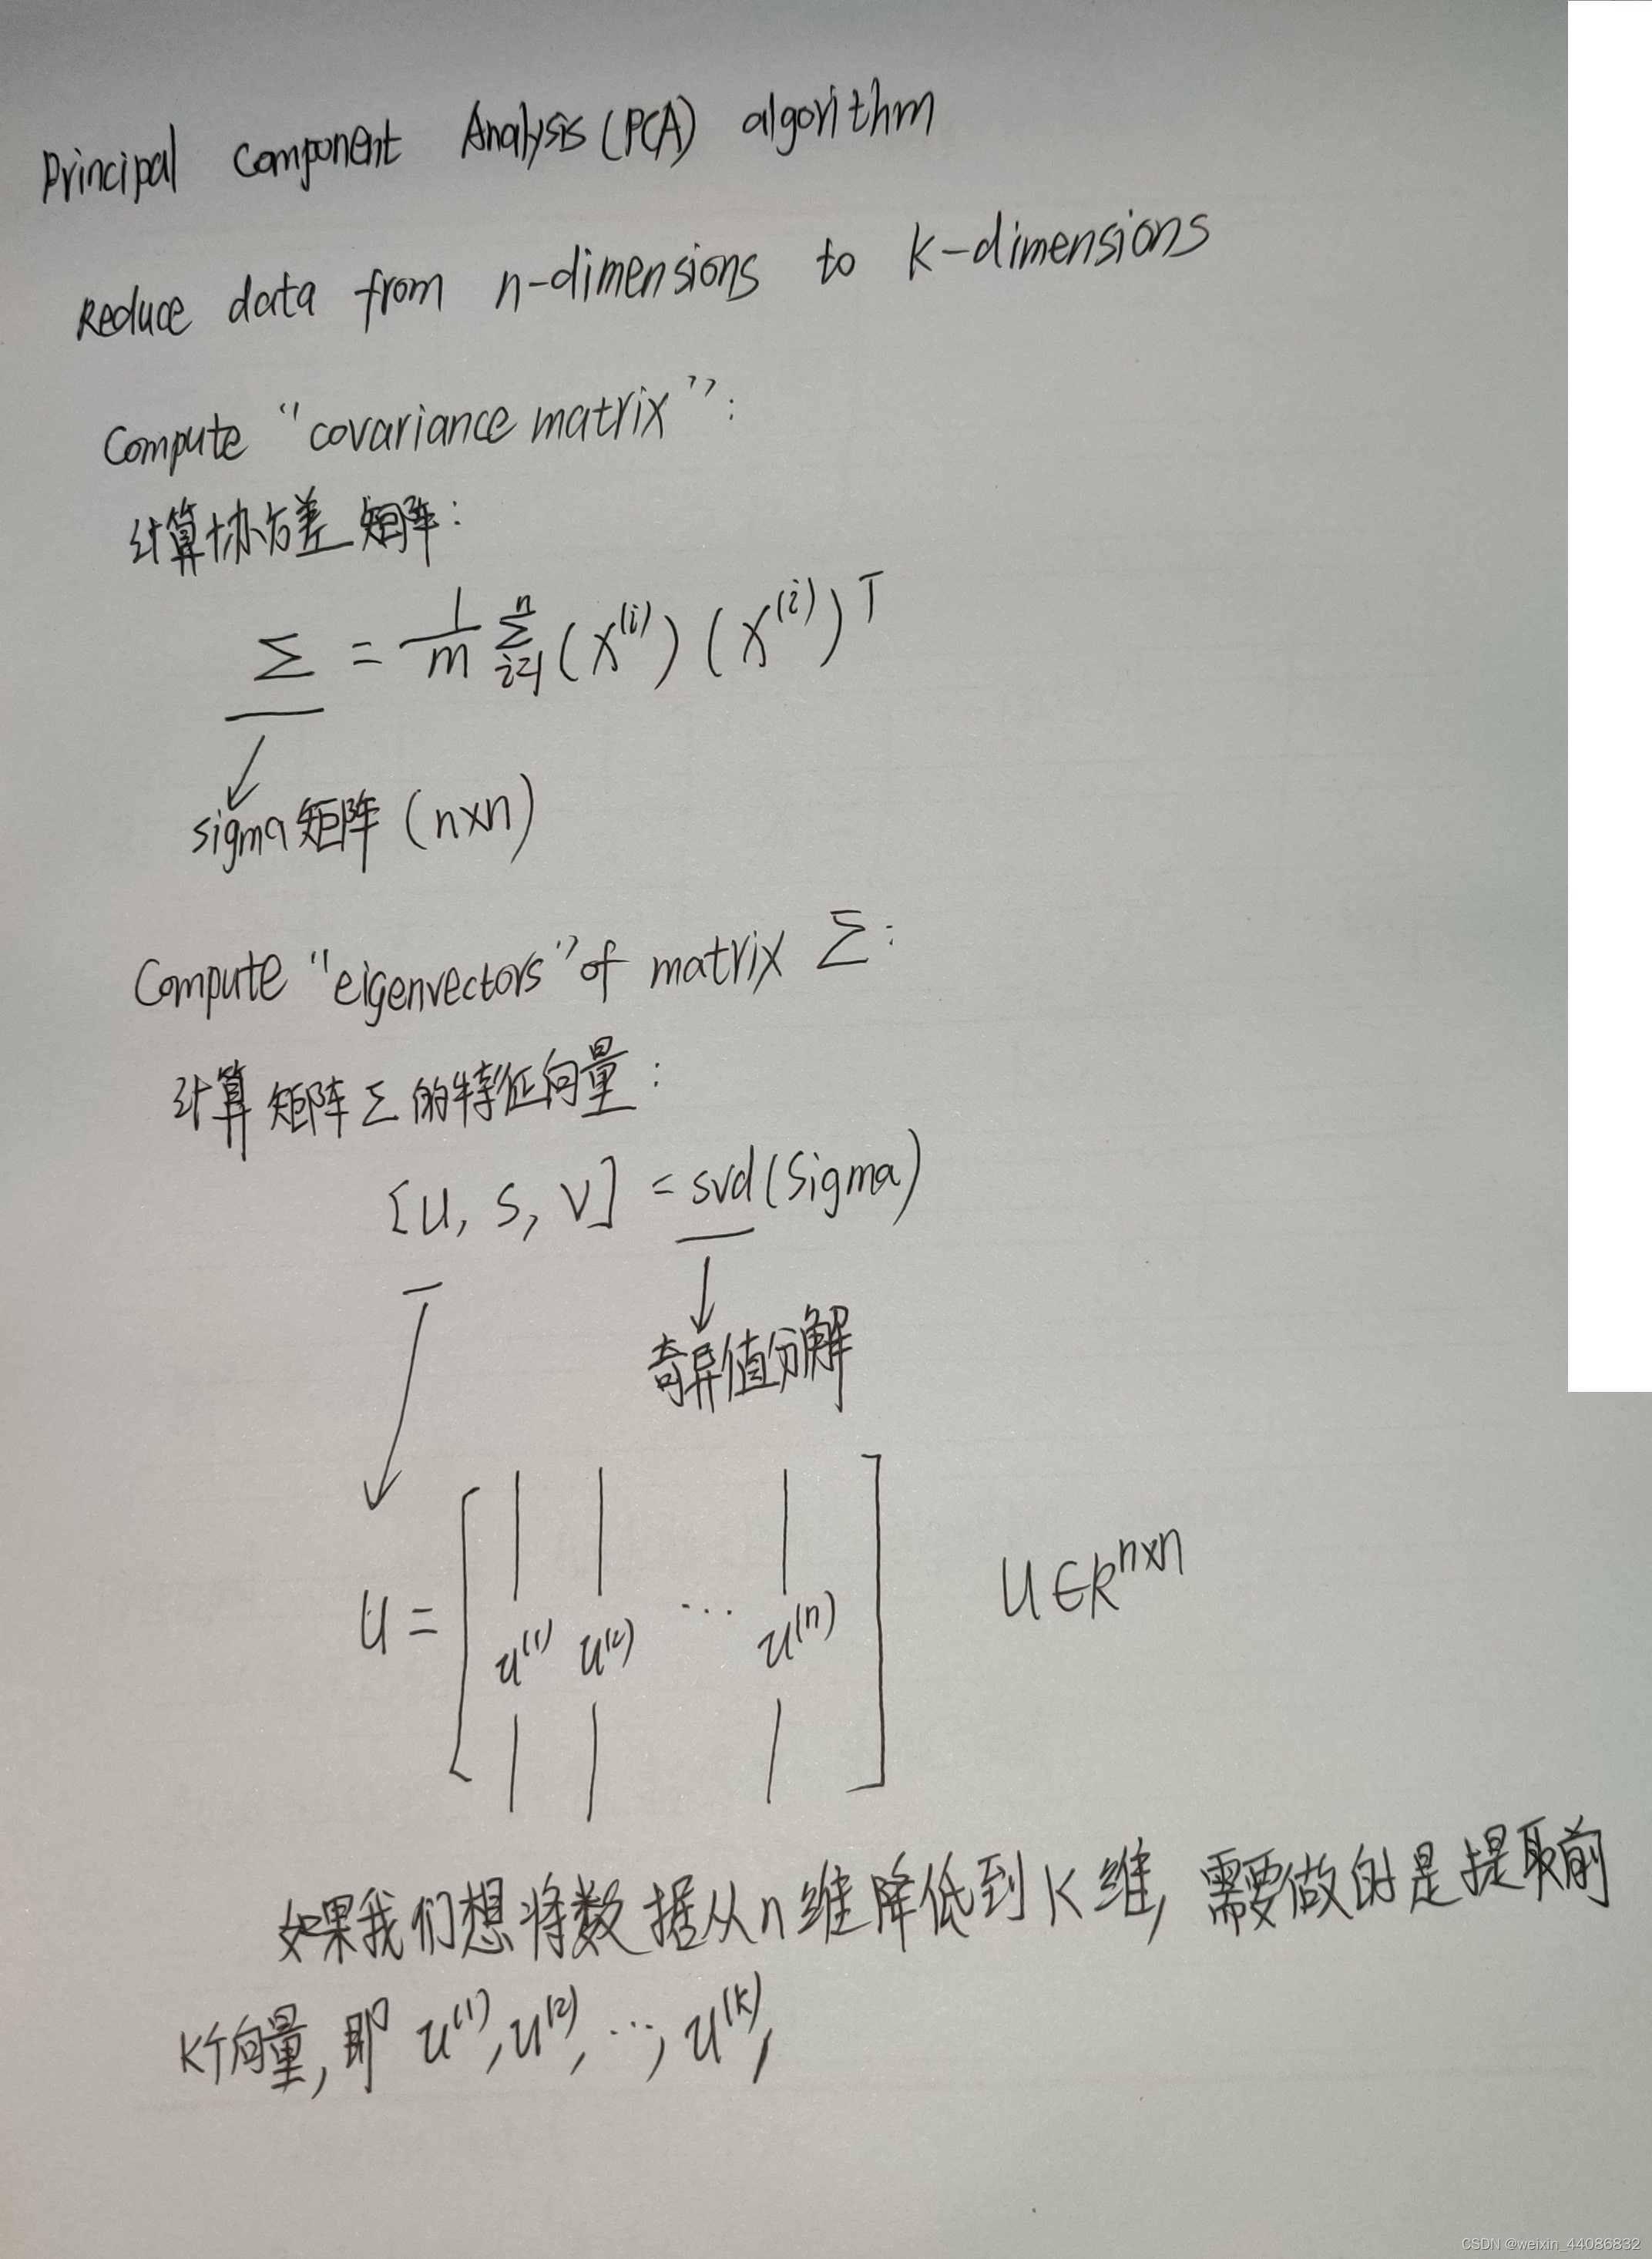 Principal Component Analysis (PCA) algorithm
Reduce data from n-dimensions to k-dimensions
Compute "covariance matrix":
计算协方差矩阵:
Σ = 1/m Σ_{i=1}^{n} (X^{(i)}) (X^{(i)})^T
sigma矩阵 (n×n)
Compute "eigenvectors" of matrix Σ:
计算矩阵Σ的特征向量:
[U, S, V] = svd(Sigma)
奇异值分解
U = [u^{(1)} u^{(2)} ... u^{(n)}] U∈R^{n×n}
如果我们想将数据从n维降低到K维, 需要做的是提取前
K个向量, 即 u^{(1)}, u^{(2)}, ..., u^{(k)},
CSDN @weixin_44086832